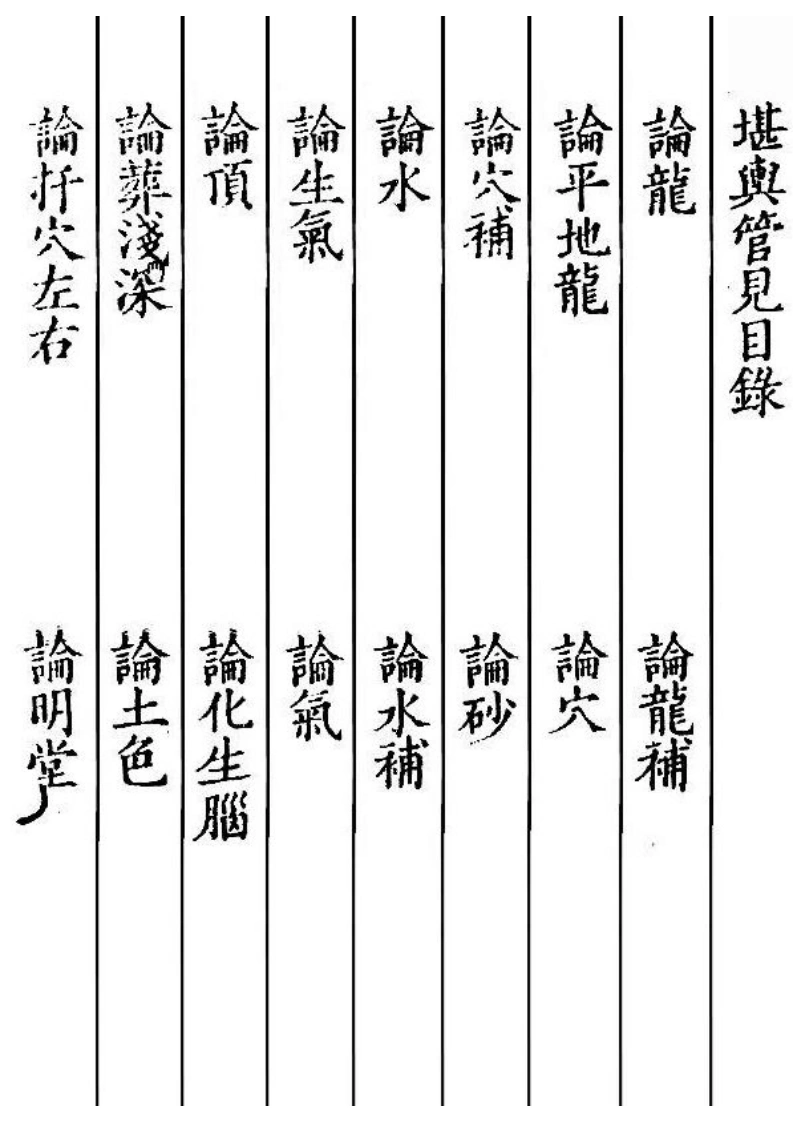 堪輿管見目錄
論龍
論龍補
論平地龍
論穴
論穴補
論砂
論水
論水補
論生氣
論氣
論頂
論化生腦
論葬淺深
論土色
論扦穴左右
論明堂